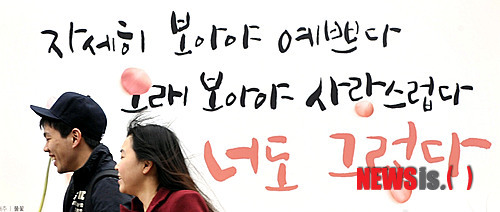 자세히 보아야 예쁘다
오래 보아야 사랑스럽다
너도 그렇다
NEWSis.( )